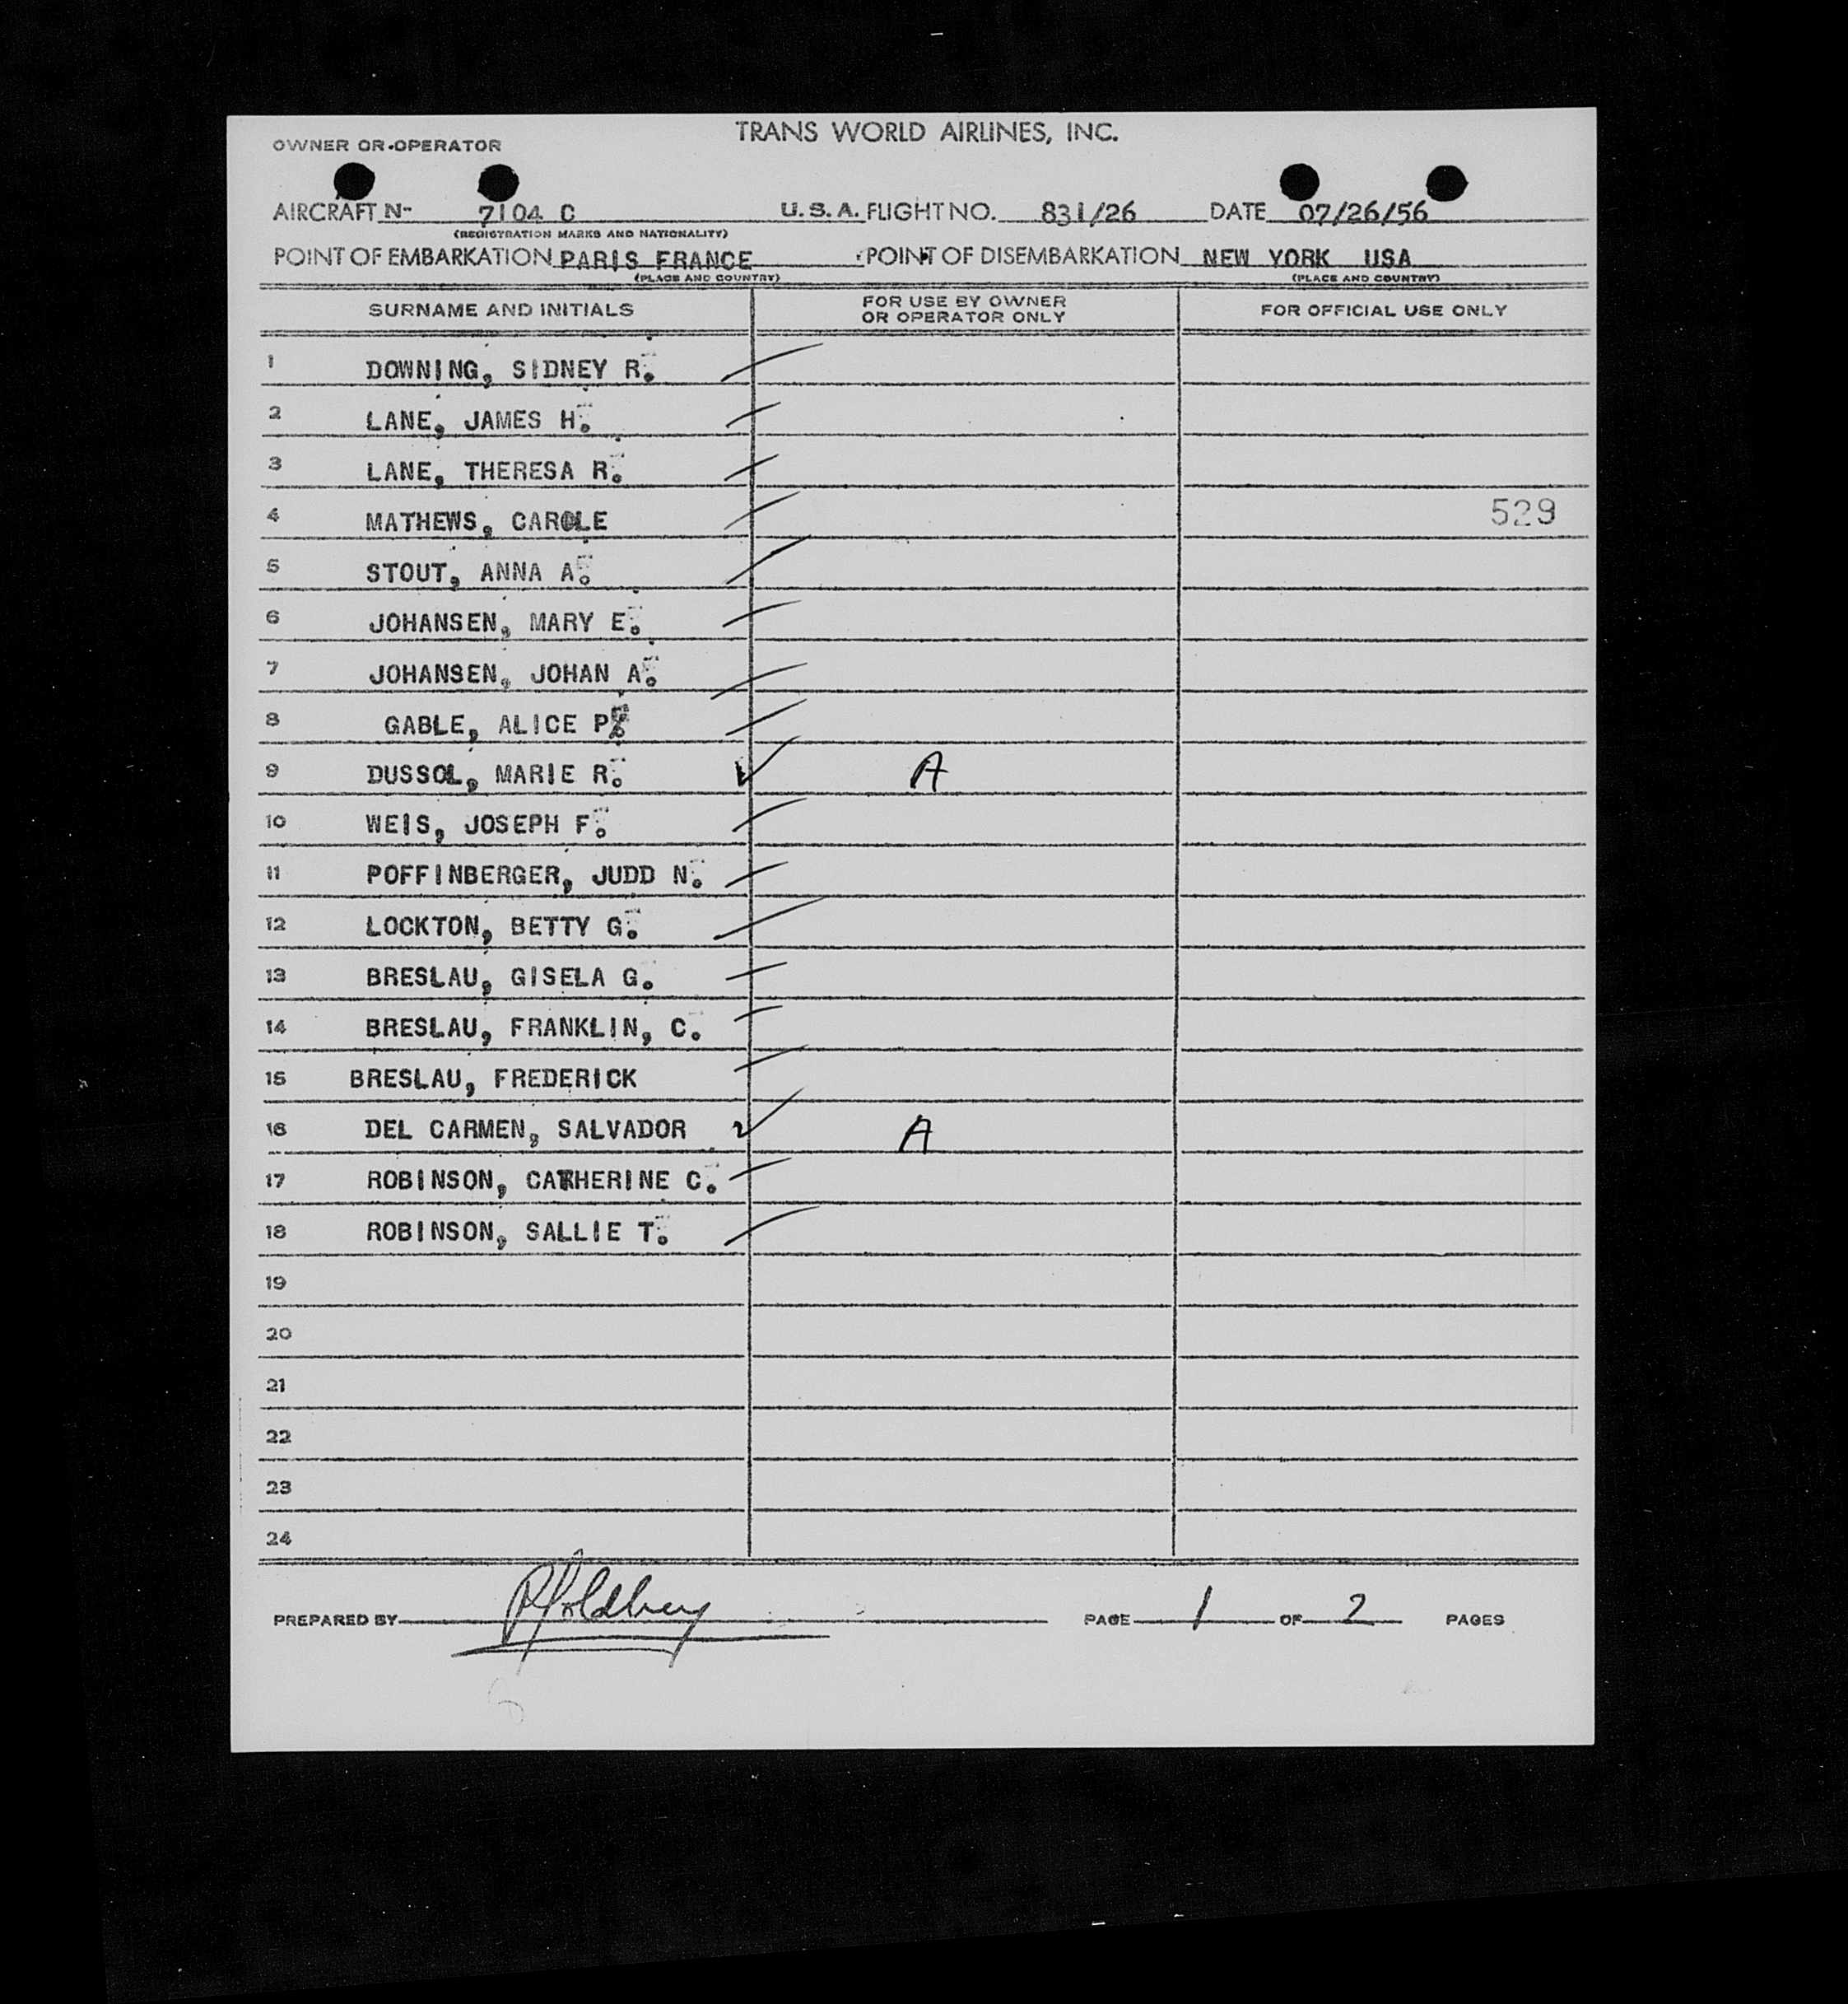 TRANS WORLD AIRLINES, INC.
OWNER OR OPERATOR
AIRCRAFT N- 7104 C U.S.A. FLIGHT NO. 831/26 DATE 07/26/56
(REGISTRATION MARKS AND NATIONALITY)
POINT OF EMBARKATION PARIS FRANCE POINT OF DISEMBARKATION NEW YORK USA
(PLACE AND COUNTRY) (PLACE AND COUNTRY)
SURNAME AND INITIALS FOR USE BY OWNER OR OPERATOR ONLY FOR OFFICIAL USE ONLY
1 DOWNING, SIDNEY R.
2 LANE, JAMES H.
3 LANE, THERESA R.
4 MATHEWS, CAROLE 529
5 STOUT, ANNA A.
6 JOHANSEN, MARY E.
7 JOHANSEN, JOHAN A.
8 GABLE, ALICE P.
9 DUSSOL, MARIE R. A
10 WEIS, JOSEPH F.
11 POFFINBERGER, JUDD N.
12 LOCKTON, BETTY G.
13 BRESLAU, GISELA G.
14 BRESLAU, FRANKLIN, C.
15 BRESLAU, FREDERICK
16 DEL CARMEN, SALVADOR A
17 ROBINSON, CATHERINE C.
18 ROBINSON, SALLIE T.
19
20
21
22
23
24
PREPARED BY PAGE 1 OF 2 PAGES